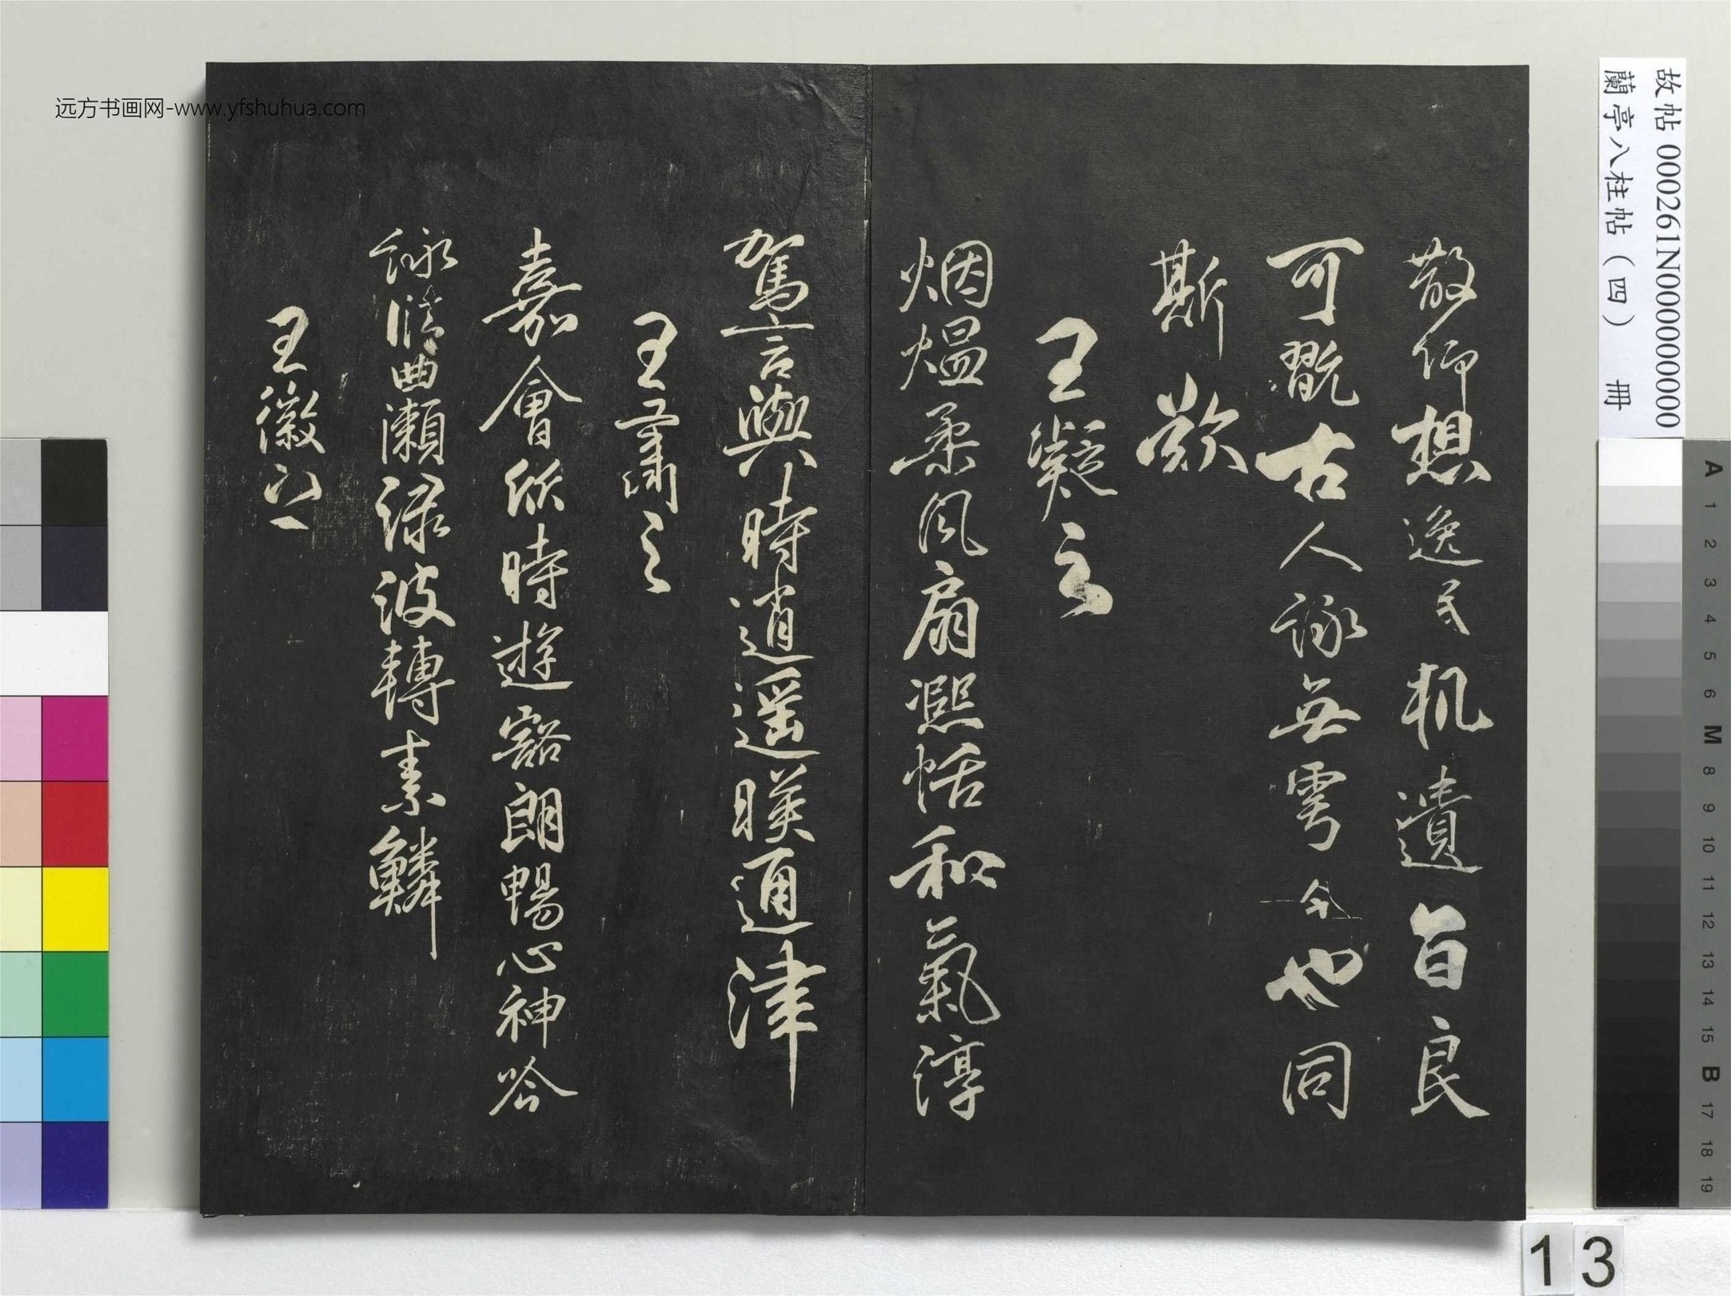 散仰想逸民軌遺旨良
可翫古人詠無雩今也同
斯歎
王凝之
烟熅柔風扇熙恬和氣淳
駕言與時逍遥暎通津
王肅之
嘉會欣時遊豁朗暢心神吟
詠清曲瀨渌波轉素鱗
王徽之
故帖 000261N000000000
蘭亭八柱帖（四） 冊
远方书画网-www.yfshuhua.com
A 1 2 3 4 5 6 M 8 9 10 11 12 13 14 15 B 17 18 19
13